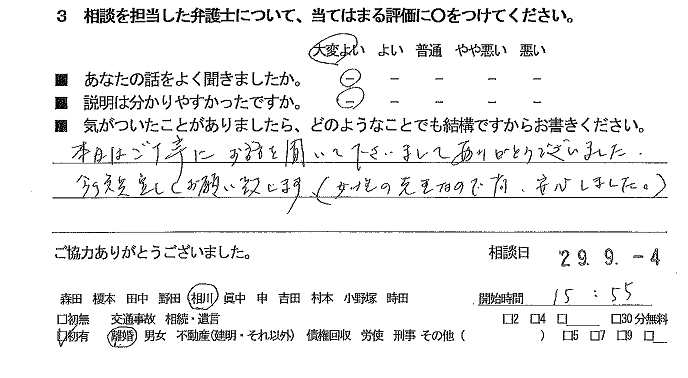 3 相談を担当した弁護士について、当てはまる評価に〇をつけてください。
大変よい よい 普通 やや悪い 悪い
あなたの話をよく聞きましたか。 − − − − −
説明は分かりやすかったですか。 − − − − −
気がついたことがありましたら、どのようなことでも結構ですからお書きください。
本日はご丁寧にお話を聞いて下さいましてありがとうございました。
今後共宜しくお願い致します。(女性の先生なので尚、安心しました。)
ご協力ありがとうございました。 相談日 29. 9. -4
森田 榎本 田中 野田 相川 眞中 申 吉田 村本 小野塚 時田 開始時間 15:55
□初無 交通事故 相続・遺言 □2 □4 □ □30分無料
□初有 離婚 男女 不動産(建明・それ以外) 債権回収 労使 刑事 その他 ( ) □5 □7 □9 □